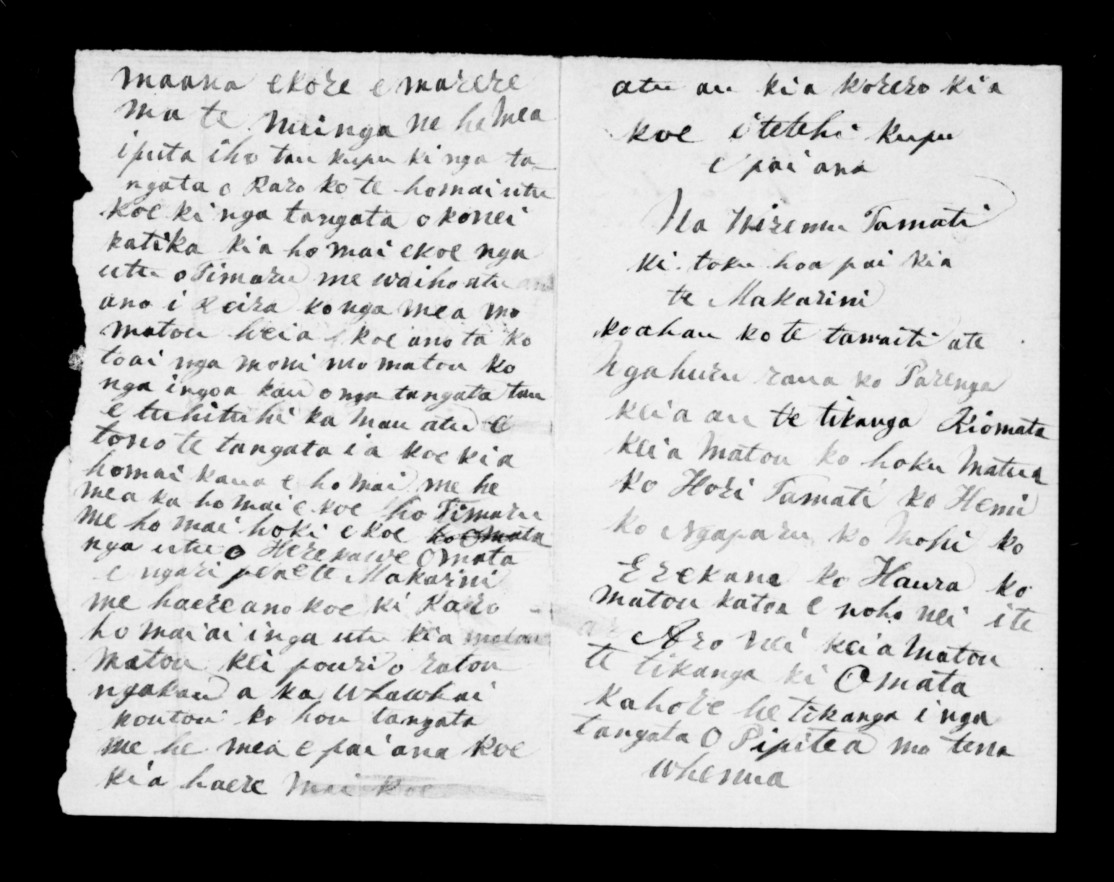 maana ekore e marere
ma te muinga ne he mea
i puta iho tau kupu ki nga ta-
ngata o Raro ko te homai utu
koe ki nga tangata o konei
katika kia homai ekoe nga
utu o Timaru me waiho atu
ano i reira ko nga mea mo
matou heia koe ano ta ko
toai nga moni mo matou ko
nga ingoa kau o nga tangata tau
e tuhituhi ka mau atu e
tono te tangata i a koe kia
homai kaua e homai me he
mea ka homai e koe ho Timaru
me homai hoki e koe ko Omata
nga utu o Herekawe Omata
e ngari pea e te Makarini
me haere ano koe ki Raro
homai ai i nga utu kia matau
matou kei pouri o ratou
ngakau a ka whawhai
koutou ko hou tangata
me he mea e pai ana koe
kia haere mai koe
atu au kia korero kia
koe i tetehi kupu
e pai ana
Na Wiremu Tamati
ki toku hoa pai kia
te Makarini
ko ahau ko te tamaiti ate
Ngahuru raua ko Parenga
kei a au te tikanga Kiomata
kei a Matou ko hoku Matua
ko Hori Tamati ko Hemi
ko Ngaparu ko Mohi ko
Erekana ko Haura ko
matou katoa e noho nei i te
Aro nei kei a Matou
te tikanga ki Omata
Kahore he tikanga i nga
tangata O Pipitea mo tena
whenua